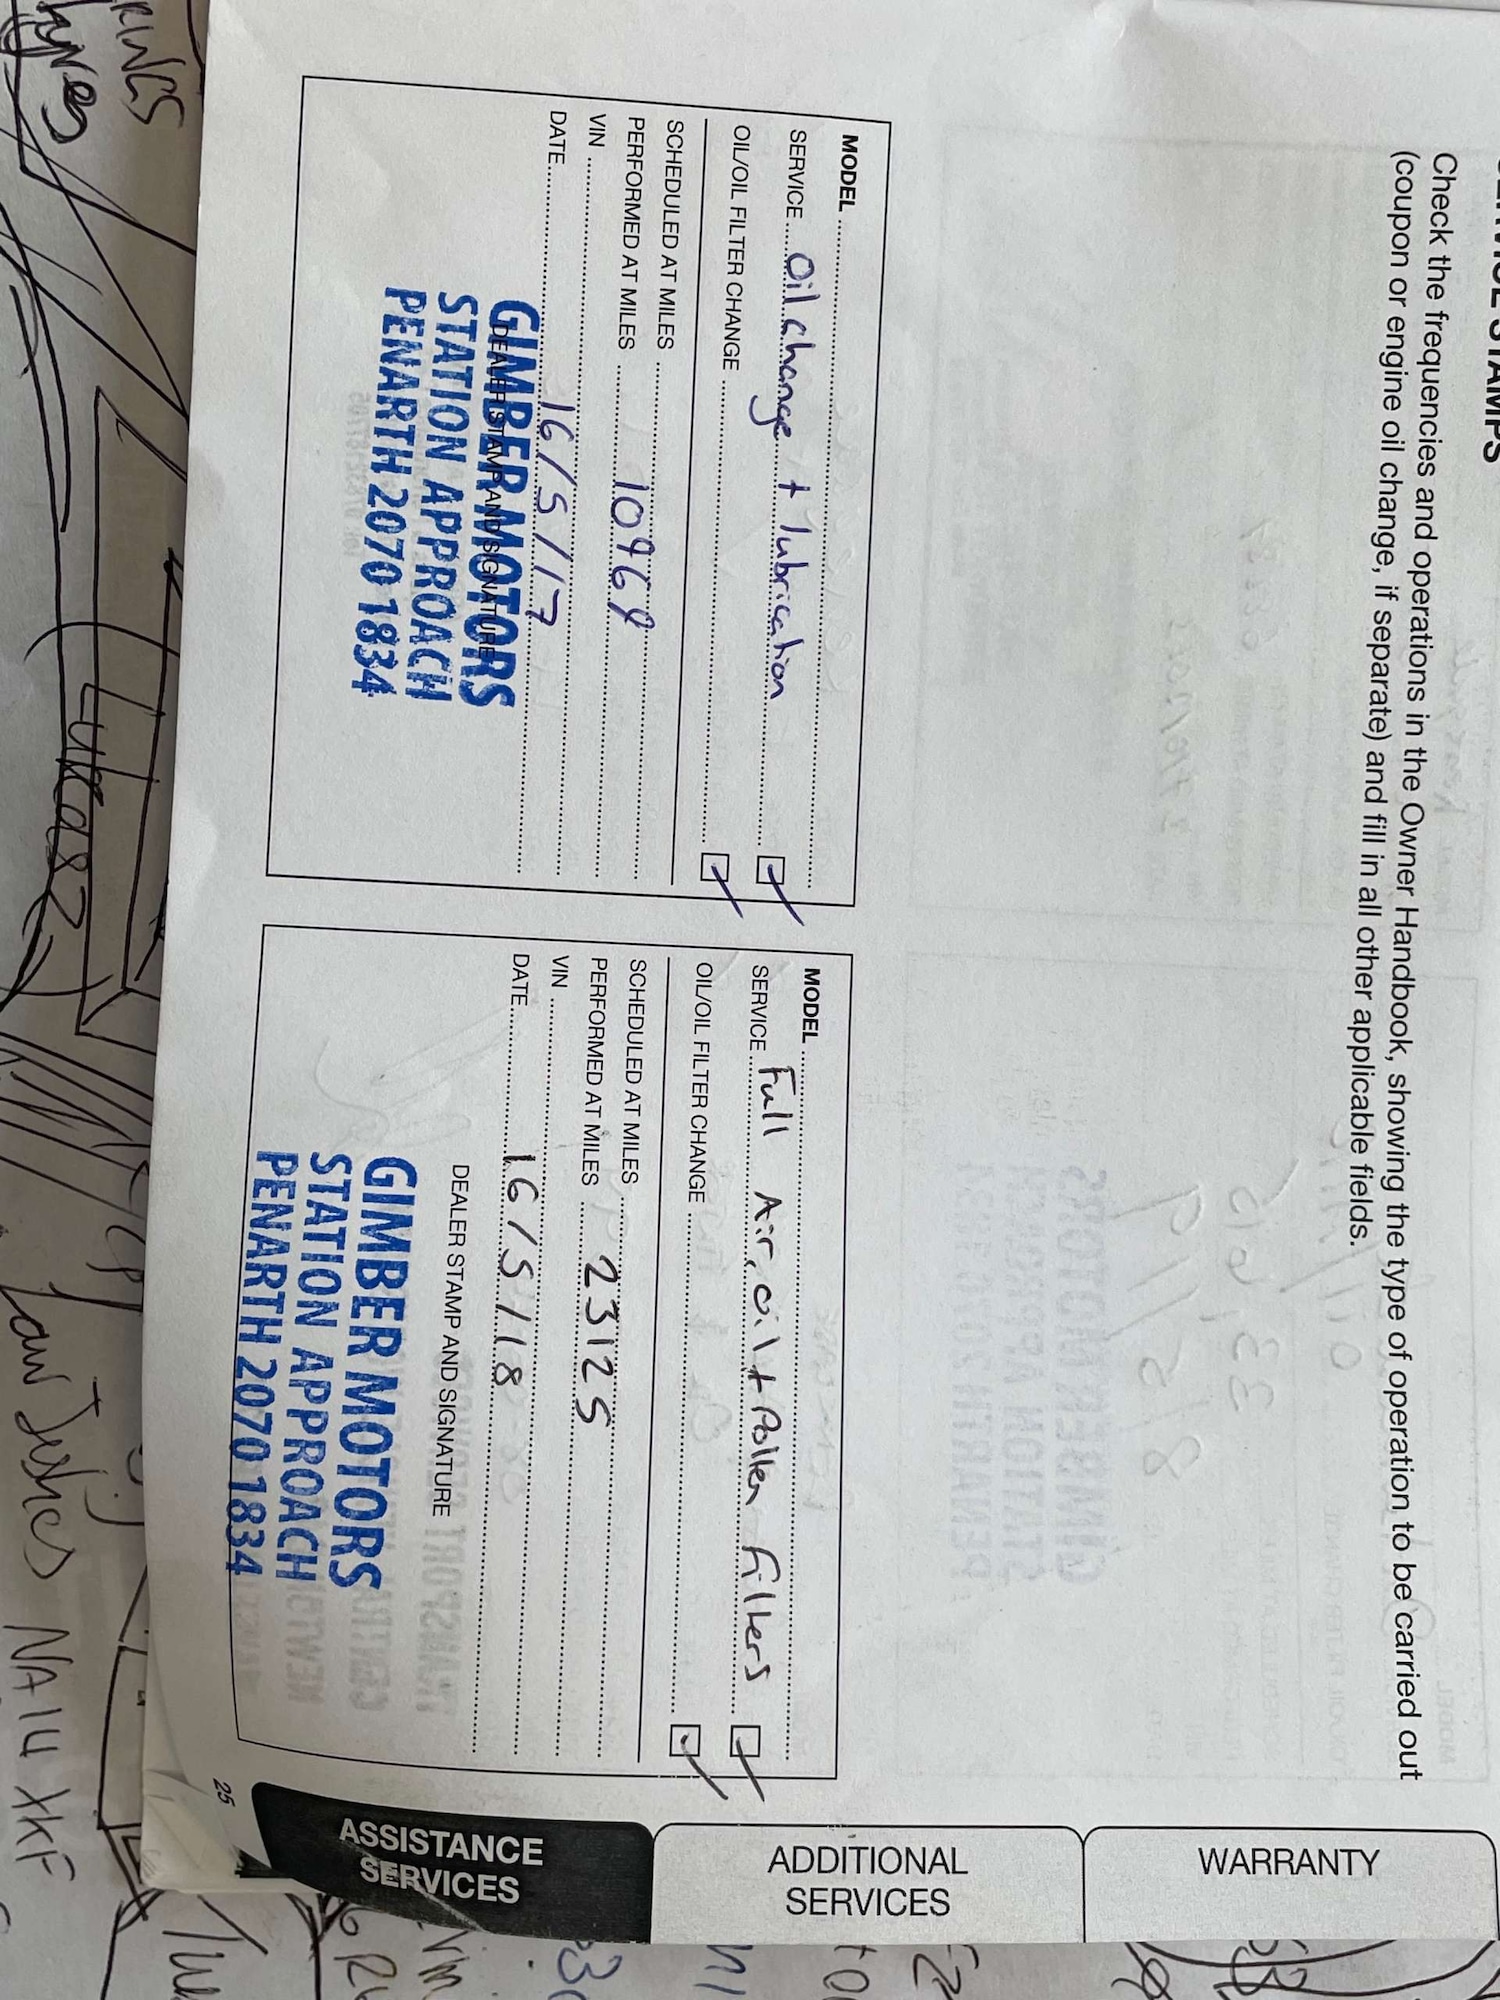 SERVICE STAMPS
Check the frequencies and operations in the Owner Handbook, showing the type of operation to be carried out
(coupon or engine oil change, if separate) and fill in all other applicable fields.
MODEL
SERVICE Oil change + lubrication
OIL/OIL FILTER CHANGE
SCHEDULED AT MILES
PERFORMED AT MILES 10968
VIN
DATE 16/5/17
DEALER STAMP AND SIGNATURE
GIMBER MOTORS
STATION APPROACH
PENARTH 2070 1834
MODEL
SERVICE Full Air, oil + Pollen filters
OIL/OIL FILTER CHANGE
SCHEDULED AT MILES
PERFORMED AT MILES 23125
VIN
DATE 16/5/18
DEALER STAMP AND SIGNATURE
GIMBER MOTORS
STATION APPROACH
PENARTH 2070 1834
25
WARRANTY
ADDITIONAL
SERVICES
ASSISTANCE
SERVICES
Lukasz
NA14 XKF